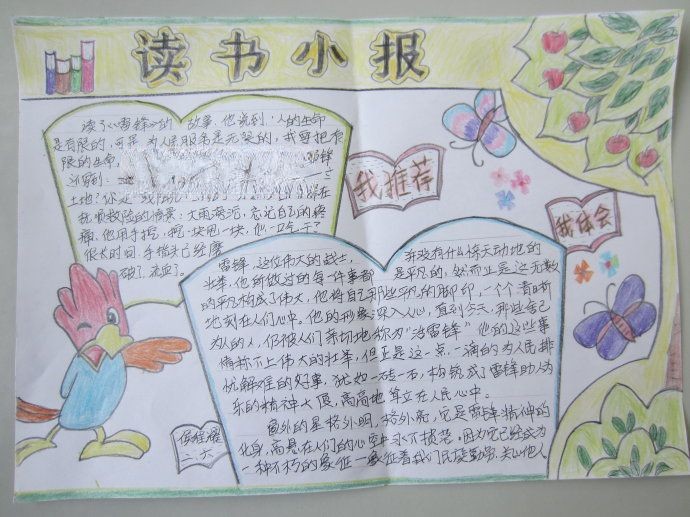 读书小报
读了《雷锋》的故事.他说到:"人的生命
是有限的,可是,为人民服务是无限的,我要把有
限的生命,
雷锋
还写到:
土地!你是
抗洪救险的情景:大雨滂沱,忘记自己的疼
痛,他用手挖,挖一块甩一块,他一口气干了
很长时间,手指头已经磨
破了.流血了。
我推荐
我体会
雷锋,这位伟大的战士,
壮举.他所做过的每一件事都
的平凡构成了伟大,他将自己那些平凡的脚印,一个个清晰
地刻在人们心中。他的形象深入人心,直到今天,那些舍己
为人的人,仍被人们亲切地称为"活雷锋"他的这些事
情称不上伟大的壮举,但正是这一点一滴的为人民排
忧解难的好事,犹如一砖一石,构筑成了雷锋助人为
乐的精神大厦,高高地耸立在人民心中。
并没有什么惊天动地的
是平凡的,然而正是这无数
窗外的星格外明,格外亮,它是雷锋精神的
化身,高悬在人们的心空中永不损落。因为它已经成为
一种不朽的象征—象征着我们民族勤劳.关心他人
二.六